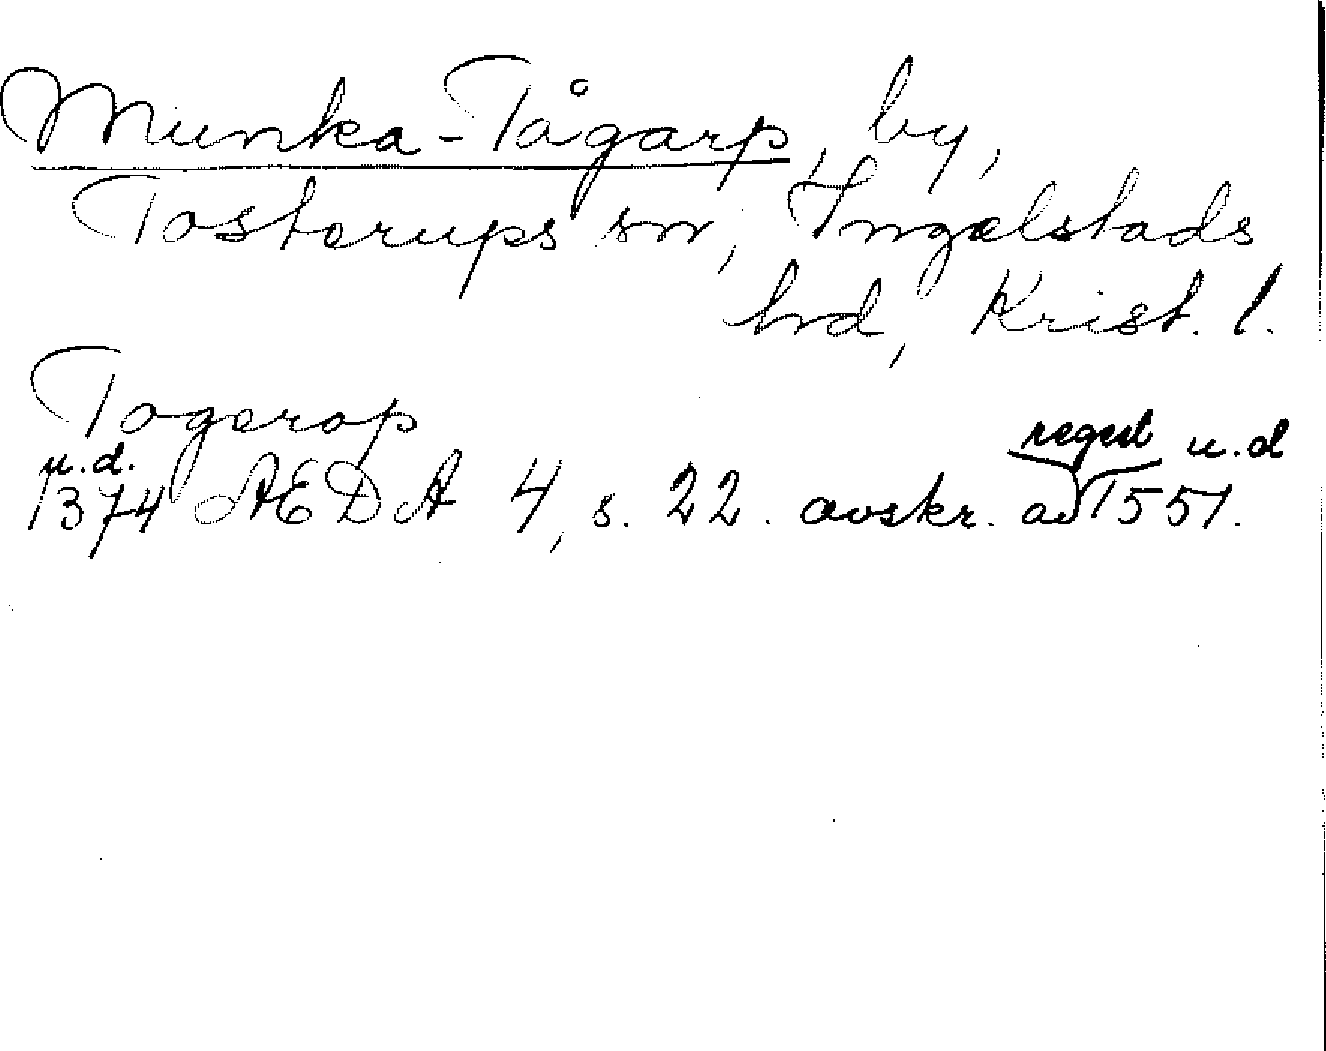 Munka-Tågarp, by,
Tosterups sn, Ingelstads
hrd, Krist. l.
Togerop
u.d. regest u.d
1374 AEDA 4, s. 22. avskr. av 1551.